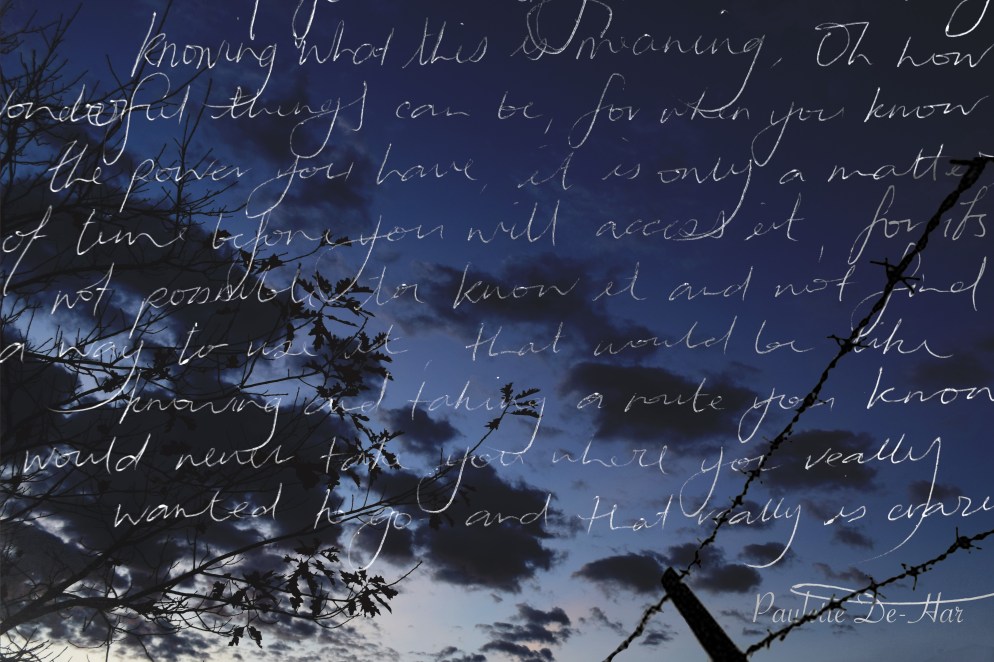 knowing what this is meaning, Oh how
onderful things can be, for when you know
the power you have, it is only a matter
of time before you will access it, for its
not possible to know it and not find
a way to use it, that would be like
knowing and taking a route you know
would never take you where you really
wanted to go and that really is crazy
Pauline De-Har